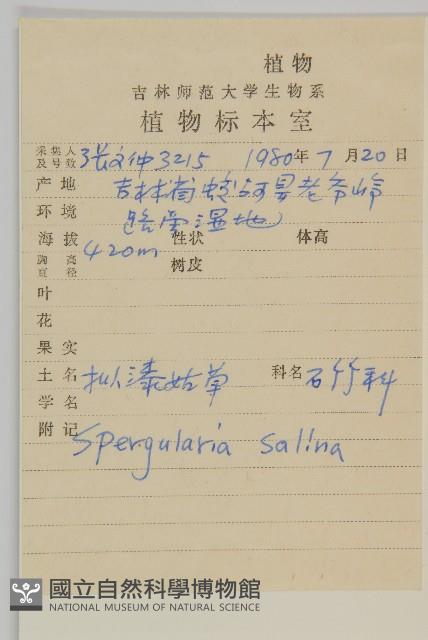 植物
吉林师范大学生物系
植物标本室
采集人及号数 张文仲3215 1980年7月20日
产地 吉林省蛟河县老爷岭
环境 路旁湿地
海拔 420m 性状 体高
胸高直径 树皮
叶
花
果实
土名 拟漆姑草 科名 石竹科
学名
附记 Spergularia salina
國立自然科學博物館
NATIONAL MUSEUM OF NATURAL SCIENCE